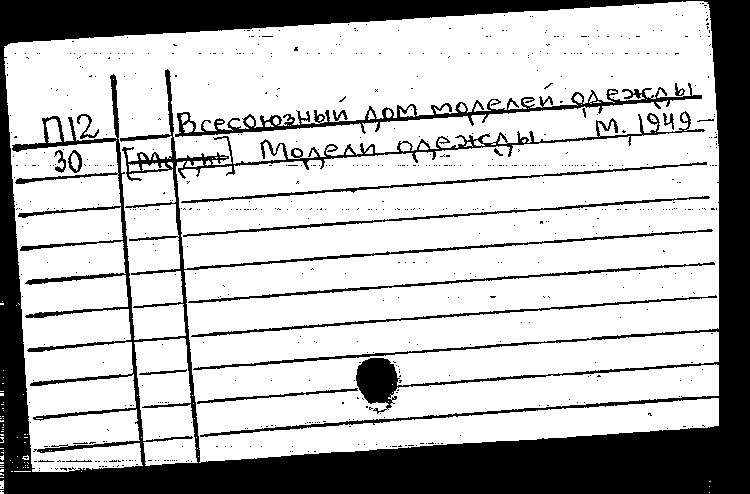 П12 Всесоюзный дом моделей одежды
30 [Моды]. Модели одежды. М, 1949